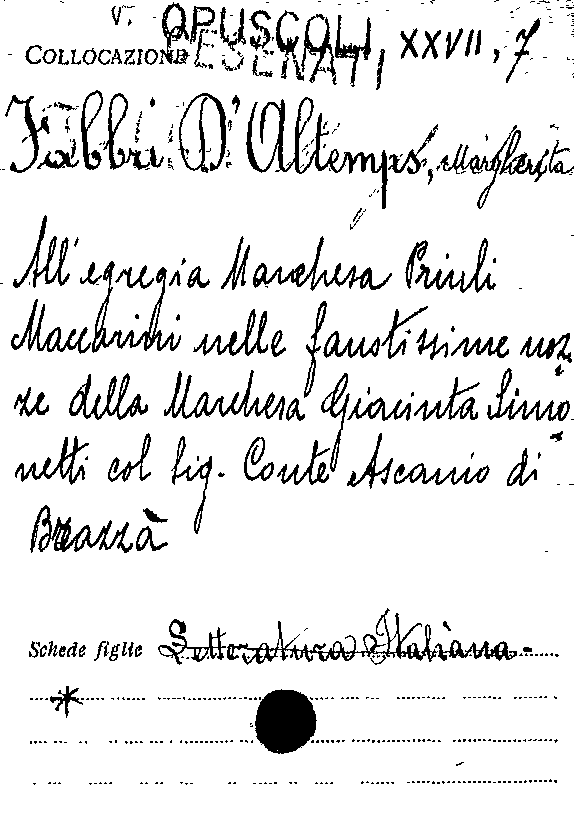 V. OPUSCOLI
COLLOCAZIONE PESENATI, XXVII, 7
Fabbri D'Altemps, Margherita
All'egregia Marchesa Priuli
Maccarini nelle faustissime noz-
ze della Marchesa Giacinta Simo-
netti col Sig. Conte Ascanio di
Brazzà
Schede figlie Letteratura Italiana-
*